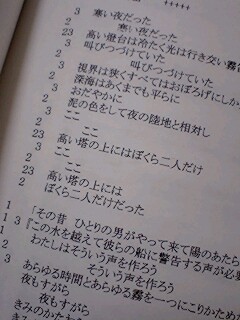 +++++
3 寒い夜だった
2 寒い夜だった
23 高い燈台は冷たく光は行き交い霧
3 叫びつづけていた
2 叫びつづけていた
3 視界は狭くすべてはおぼろげにしか
2 深海はあくまでも平らに
3 おだやかに
2 泥の色をして夜の陸地と相対し
3 ここ
2 ここ
23 高い塔の上にはぼくら二人だけ
3 高い塔の上には
2 ぼくら二人だけだった
1 「その昔 ひとりの男がやって来て陽のあたら
1 『この水を越えて彼らの船に警告する声が必要
3 わたしはそういう声を作ろう
2 そういう声を作ろう
3 あらゆる時間とあらゆる霧を一つにこりかため
2 夜もすがら
夜もすがら
きみのかたわら